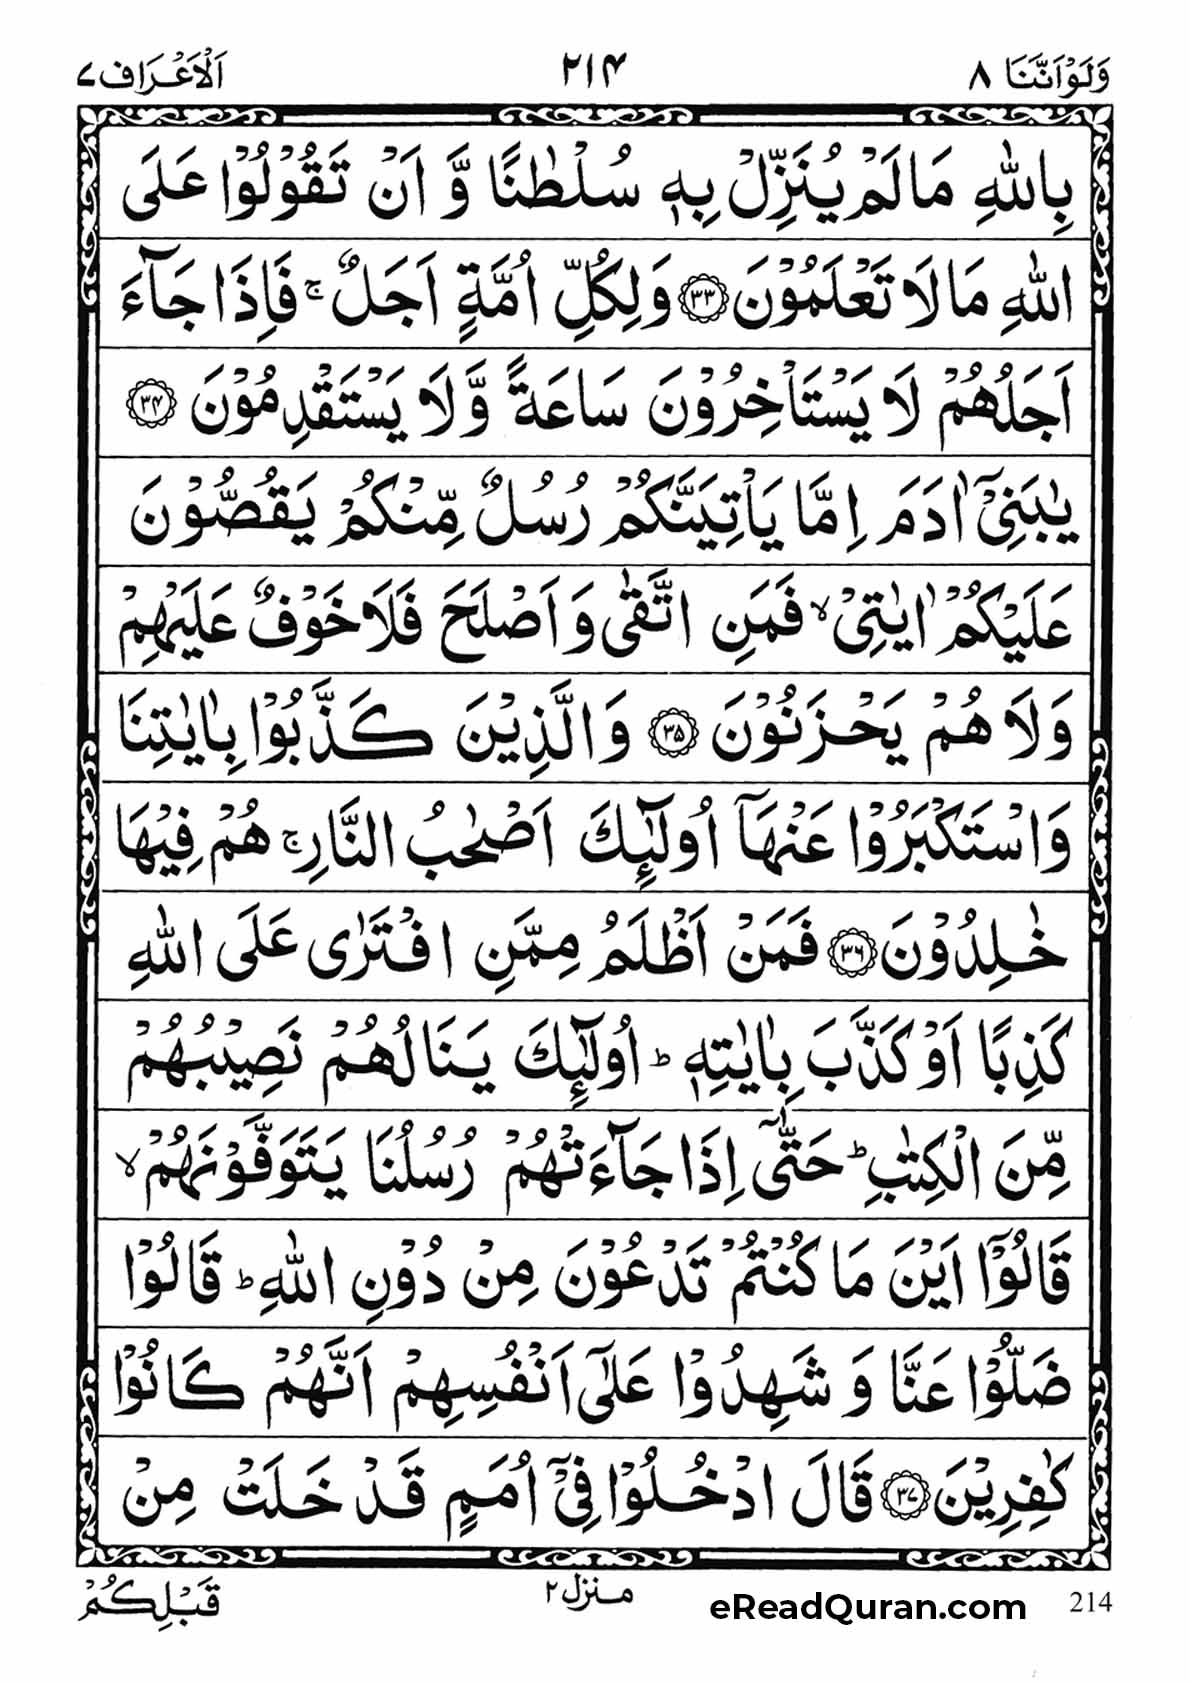 وَلَوْاَنَّنَا ٨
٢١۴
اَلْاَعْرَاف ٧
بِاللّٰهِ مَا لَمْ یُنَزِّلْ بِهٖ سُلْطٰنًا وَّ اَنْ تَقُوْلُوْا عَلَی
اللّٰهِ مَا لَا تَعْلَمُوْنَ ﴿٣٣﴾ وَلِكُلِّ اُمَّةٍ اَجَلٌ ۚ فَاِذَا جَآءَ
اَجَلُهُمْ لَا یَسْتَاْخِرُوْنَ سَاعَةً وَّ لَا یَسْتَقْدِمُوْنَ ﴿٣۴﴾
یٰبَنِیْۤ اٰدَمَ اِمَّا یَاْتِیَنَّكُمْ رُسُلٌ مِّنْكُمْ یَقُصُّوْنَ
عَلَیْكُمْ اٰیٰتِیْ ۙ فَمَنِ اتَّقٰی وَ اَصْلَحَ فَلَا خَوْفٌ عَلَیْهِمْ
وَلَا هُمْ یَحْزَنُوْنَ ﴿٣۵﴾ وَ الَّذِیْنَ كَذَّبُوْا بِاٰیٰتِنَا
وَاسْتَكْبَرُوْا عَنْهَاۤ اُولٰٓئِكَ اَصْحٰبُ النَّارِ ۚ هُمْ فِیْهَا
خٰلِدُوْنَ ﴿٣٦﴾ فَمَنْ اَظْلَمُ مِمَّنِ افْتَرٰی عَلَی اللّٰهِ
كَذِبًا اَوْ كَذَّبَ بِاٰیٰتِهٖ ؕ اُولٰٓئِكَ یَنَالُهُمْ نَصِیْبُهُمْ
مِّنَ الْكِتٰبِ ؕ حَتّٰۤی اِذَا جَآءَتْهُمْ رُسُلُنَا یَتَوَفَّوْنَهُمْ ۙ
قَالُوْۤا اَیْنَ مَا كُنْتُمْ تَدْعُوْنَ مِنْ دُوْنِ اللّٰهِ ؕ قَالُوْا
ضَلُّوْا عَنَّا وَ شَهِدُوْا عَلٰۤی اَنْفُسِهِمْ اَنَّهُمْ كَانُوْا
كٰفِرِیْنَ ﴿٣٧﴾ قَالَ ادْخُلُوْا فِیْۤ اُمَمٍ قَدْ خَلَتْ مِنْ
قَبْلِكُمْ
منزل ٢
eReadQuran.com
214